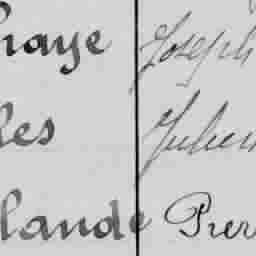 haye Joseph
les Julien
lande Pierr